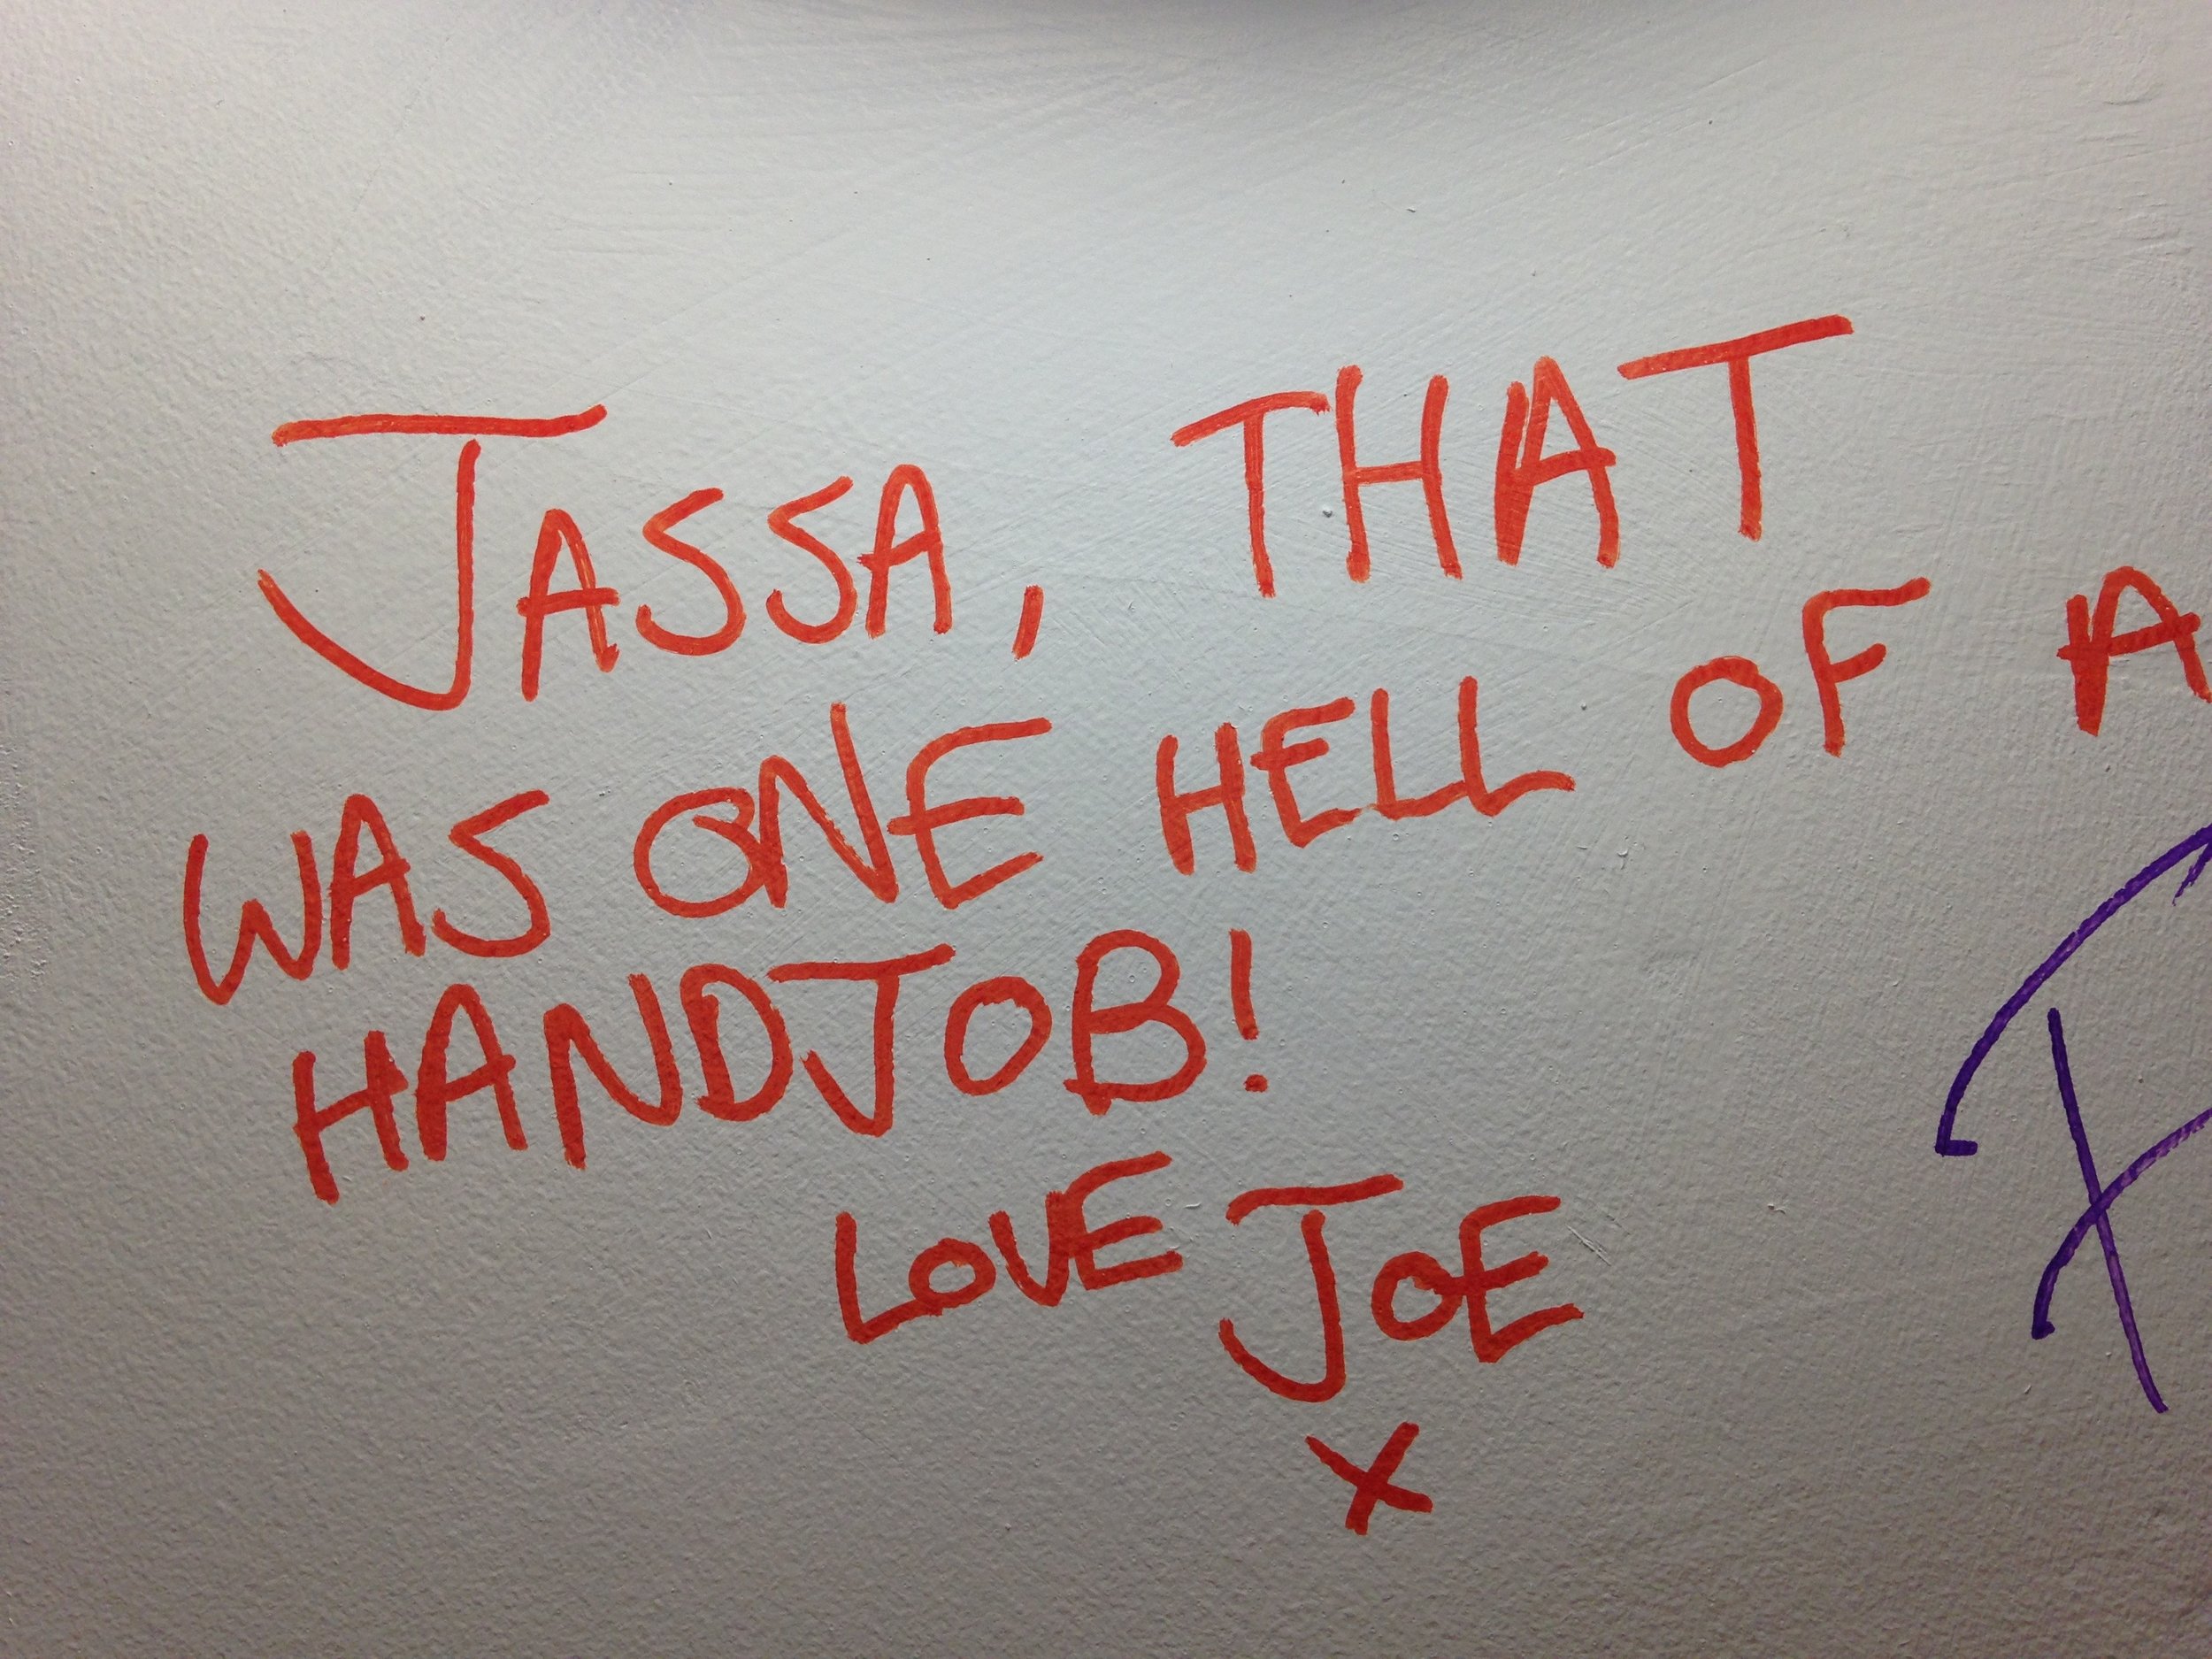 JASSA, THAT
WAS ONE HELL OF A
HANDJOB!
LOVE JOE
X